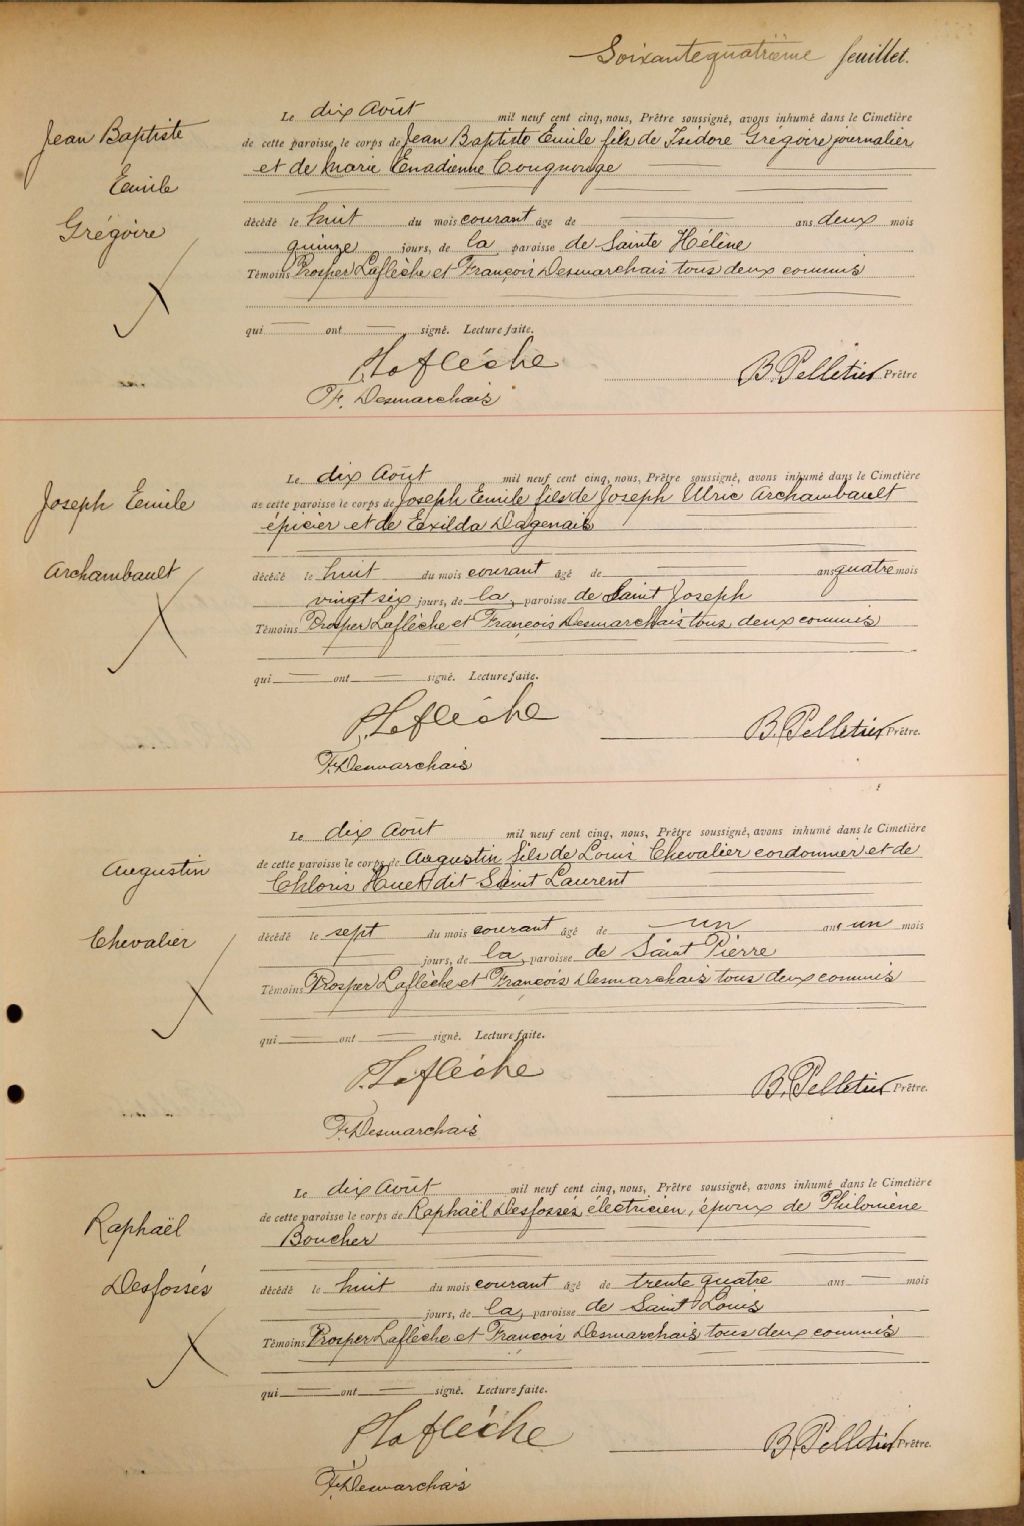 Soixantequatrième feuillet.
Jean Baptiste
Emile
Grégoire
Le dix Août mil neuf cent cinq, nous, Prêtre soussigné, avons inhumé dans le Cimetière
de cette paroisse, le corps de Jean Baptiste Emile fils de Isidore Grégoire journalier
et de Marie Enadienne Cougnonge
décédé le huit du mois courant âgé de ans deux mois
quinze jours, de la paroisse de Sainte Hélène
Témoins Prosper Laflèche et François Desmarchais tous deux commis
qui ont signé. Lecture faite.
P. Laflèche
B. Pelletier Prêtre
F. Desmarchais
Joseph Emile
Archambault
Le dix Août mil neuf cent cinq, nous, Prêtre soussigné, avons inhumé dans le Cimetière
de cette paroisse le corps de Joseph Emile fils de Joseph Ulric Archambault
épicier et de Exilda Dagenais
décédé le huit du mois courant âgé de ans quatre mois
vingt six jours, de la paroisse de Saint Joseph
Témoins Prosper Laflèche et François Desmarchais tous deux commis
qui ont signé. Lecture faite.
P. Laflèche
B. Pelletier Prêtre.
F. Desmarchais
Augustin
Chevalier
Le dix Août mil neuf cent cinq, nous, Prêtre soussigné, avons inhumé dans le Cimetière
de cette paroisse le corps de Augustin fils de Louis Chevalier cordonnier et de
Chloris Huet dit Saint Laurent
décédé le sept du mois courant âgé de un ans un mois
jours, de la paroisse de Saint Pierre
Témoins Prosper Laflèche et François Desmarchais tous deux commis
qui ont signé. Lecture faite.
P. Laflèche
B. Pelletier Prêtre.
F. Desmarchais
Raphaël
Desfossés
Le dix Août mil neuf cent cinq, nous, Prêtre soussigné, avons inhumé dans le Cimetière
de cette paroisse le corps de Raphaël Desfossés électricien, époux de Philomène
Boucher
décédé le huit du mois courant âgé de trente quatre ans mois
jours, de la paroisse de Saint Louis
Témoins Prosper Laflèche et François Desmarchais tous deux commis
qui ont signé. Lecture faite.
P. Laflèche
B. Pelletier Prêtre.
F. Desmarchais